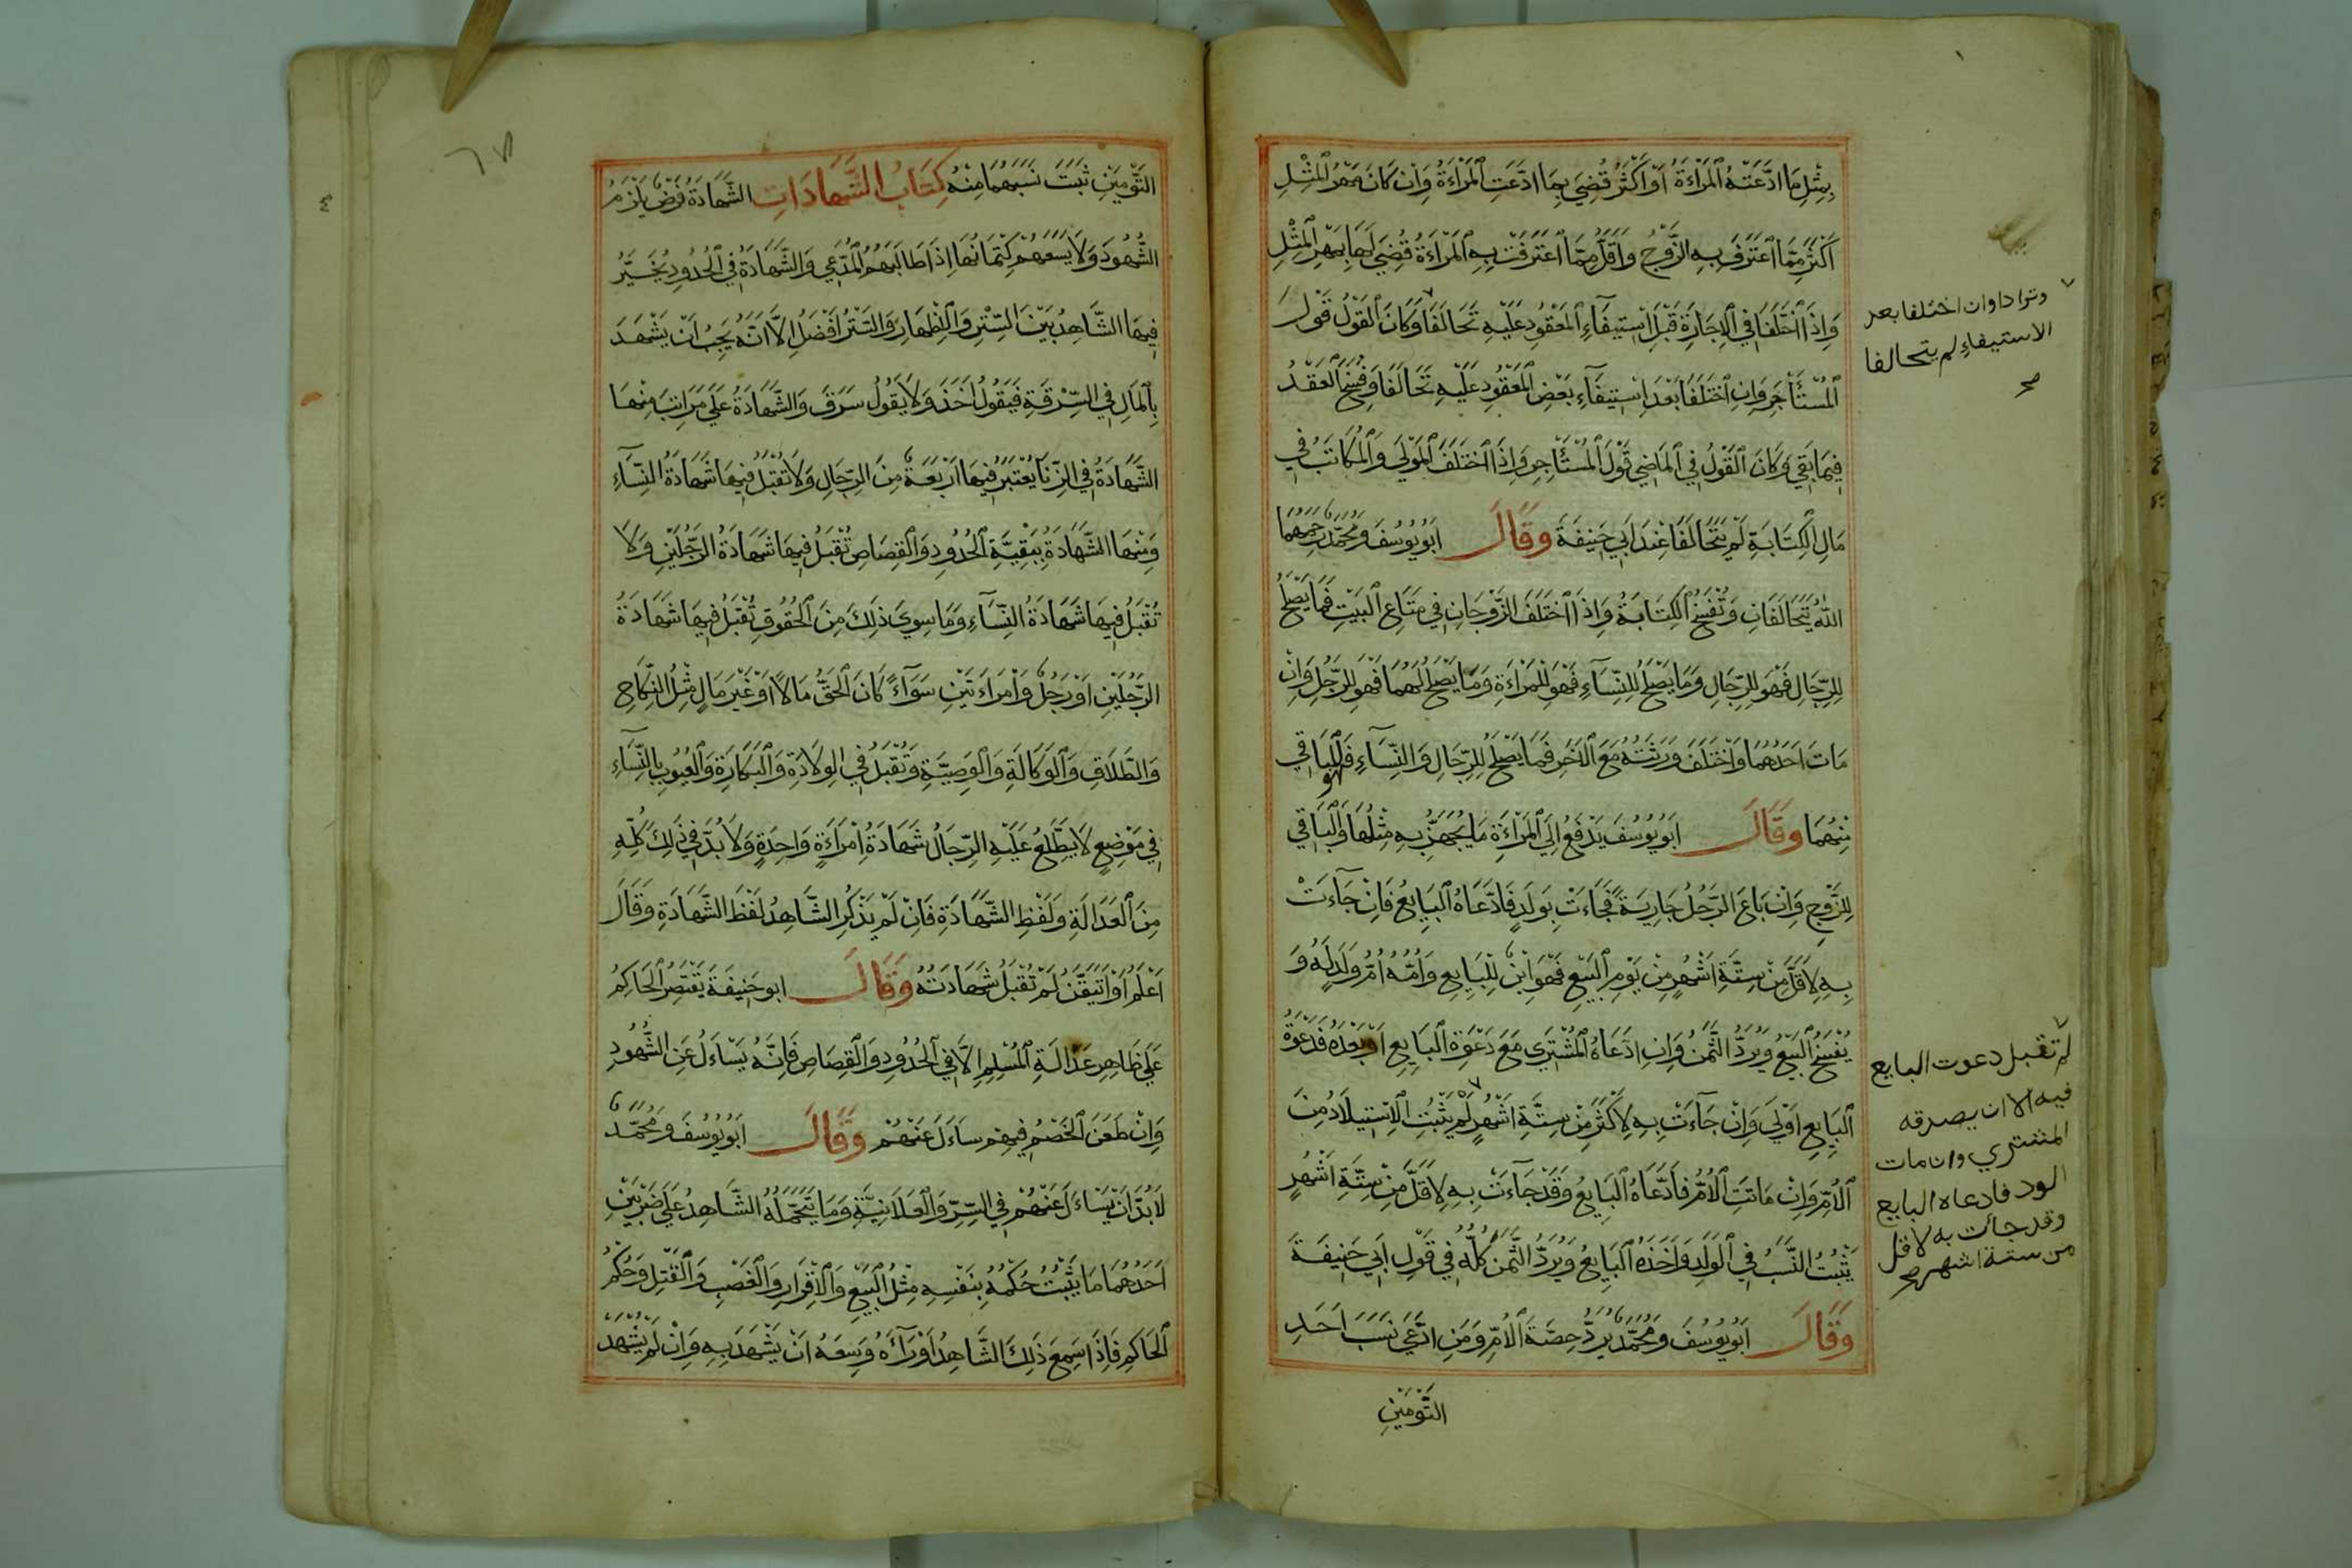 بِمِثْلِ مَا ادَّعَتْهُ الْمَرْاَةُ اَوْ اَكْثَرُ قُضِيَ بِمَا ادَّعَتِ الْمَرْاَةُ وَاِنْ كَانَ مَهْرُ الْمِثْلِ
اَكْثَرَ مِمَّا اعْتَرَفَ بِهِ الزَّوْجُ وَاَقَلَّ مِمَّا اعْتَرَفَتْ بِهِ الْمَرْاَةُ قُضِيَ لَهَا بِمَهْرِ الْمِثْلِ
وَاِذَا اخْتَلَفَا فِي الْاِجَارَةِ قَبْلَ اسْتِيفَاءِ الْمَعْقُودِ عَلَيْهِ تَحَالَفَا وَكَانَ الْقَوْلُ قَوْلَ
الْمُسْتَأْجِرِ وَاِنِ اخْتَلَفَا بَعْدَ اسْتِيفَاءِ بَعْضِ الْمَعْقُودِ عَلَيْهِ تَحَالَفَا وَفُسِخَ الْعَقْدُ
فِيمَا بَقِيَ وَكَانَ الْقَوْلُ فِي الْمَاضِي قَوْلَ الْمُسْتَأْجِرِ وَاِذَا اخْتَلَفَ الْمَوْلَي وَالْمُكَاتَبُ فِي
مَالِ الْكِتَابَةِ لَمْ يَتَحَالَفَا عِنْدَ اَبِي حَنِيفَةَ وَقَالَ اَبُو يُوسُفَ وَمُحَمَّدٌ رَحِمَهُمَا
اللّٰهُ يَتَحَالَفَانِ وَتُفْسَخُ الْكِتَابَةُ وَاِذَا اخْتَلَفَ الزَّوْجَانِ فِي مَتَاعِ الْبَيْتِ فَمَا يَصْلُحُ
لِلرِّجَالِ فَهْوَ لِلرِّجَالِ وَمَا يَصْلُحُ لِلنِّسَاءِ فَهْوَ لِلْمَرْاَةِ وَمَا يَصْلُحُ لَهُمَا فَهْوَ لِلرَّجُلِ وَاِنْ
مَاتَ اَحَدُهُمَا وَاخْتَلَفَ وَرَثَتُهُ مَعَ الْاَخَرِ فَمَا يَصْلُحُ لِلرِّجَالِ وَالنِّسَاءِ فَهُو لِلْبَاقِي
مِنْهُمَا وَقَالَ اَبُو يُوسُفَ يَدْفَعُ اِلَي الْمَرْاَةِ مَا يُجَهَّزُ بِهِ مِثْلُهَا وَالْبَاقِي
لِلزَّوْجِ وَاِنْ بَاعَ الرَّجُلُ جَارِيَةً فَجَاءَتْ بِوَلَدٍ فَادَّعَاهُ الْبَايِعُ فَاِنْ جَاءَتْ
بِهِ لِاَقَلَّ مِنْ سِتَّةِ اَشْهُرٍ مِنْ يَوْمِ الْبَيْعِ فَهْوَ ابْنٌ لِلْبَايِعِ وَاُمُّهُ اُمُّ وَلَدٍ لَهُ وَ
يُفْسَخُ الْبَيْعُ وَيُرَدُّ الثَّمَنُ وَاِنِ ادَّعَاهُ الْمُشْتَرِي مَعَ دَعْوَةِ الْبَايِعِ اَوْ بَعْدَهُ فَدَعْوَةُ
الْبَايِعِ اَوْلَي وَاِنْ جَاءَتْ بِهِ لِاَكْثَرَ مِنْ سِتَّةِ اَشْهُرٍ لَمْ يَثْبُتِ الْاِسْتِيلَادُ مِنَ
الْاُمِّ وَاِنْ مَاتَتِ الْاُمُّ فَادَّعَاهُ الْبَايِعُ وَقَدْ جَاءَتْ بِهِ لِاَقَلَّ مِنْ سِتَّةِ اَشْهُرٍ
يَثْبُتُ النَّسَبُ فِي الْوَلَدِ وَاَخَذَهُ الْبَايِعُ وَيُرَدُّ الثَّمَنُ كُلُّهُ فِي قَوْلِ اَبِي حَنِيفَةَ
وَقَالَ اَبُو يُوسُفَ وَمُحَمَّدٌ يُرَدُّ حِصَّةَ الْاُمِّ وَمَنِ ادَّعَي نَسَبَ اَحَدِ
التَّوْمَيْنِ
وترادا وان اختلفا بعد
الاستيفاء لم يتحالفا
صح
لم تقبل دعوت البايع
فيه الا ان يصدقه
المشتري وان مات
الود فادعاه البايع
وقد جات به لاقل
من ستة اشهر صح
٦٧
التَّوْمَيْنِ ثَبَتَ نَسَبُهُمَا مِنْهُ كِتَابُ الشَّهَادَاتِ الشَّهَادَةُ فَرْضٌ يَلْزَمُ
الشُّهُودَ وَلَا يَسَعُهُمْ كِتْمَانُهَا اِذَا طَالَبَهُمُ الْمُدَّعِي وَالشَّهَادَةُ فِي الْحُدُودِ يُخَيَّرُ
فِيهَا الشَّاهِدُ بَيْنَ السِّتْرِ وَالْاِظْهَارِ وَالسَّتْرُ اَفْضَلُ اِلَّا اَنَّهُ يَجِبُ اَنْ يَشْهَدَ
بِالْمَالِ فِي السِّرْقَةِ فَيَقُولُ اَخَذَ وَلَا يَقُولُ سَرَقَ وَالشَّهَادَةُ عَلَي مَرَاتِبَ مِنْهَا
الشَّهَادَةُ فِي الزِّنَا يُعْتَبَرُ فِيهَا اَرْبَعَةٌ مِنَ الرِّجَالِ وَلَا تُقْبَلُ فِيهَا شَهَادَةُ النِّسَاءِ
وَمِنْهَا الشَّهَادَةُ بِبَقِيَّةِ الْحُدُودِ وَالْقِصَاصِ تُقْبَلُ فِيهَا شَهَادَةُ الرَّجُلَيْنِ وَلَا
تُقْبَلُ فِيهَا شَهَادَةُ النِّسَاءِ وَمَا سِوَي ذَلِكَ مِنَ الْحُقُوقِ تُقْبَلُ فِيهَا شَهَادَةُ
الرَّجُلَيْنِ اَوْ رَجُلٌ وَامْرَاَتَيْنِ سَوَاءً كَانَ الْحَقُّ مَالًا اَوْ غَيْرَ مَالٍ مِثْلُ النِّكَاحِ
وَالطَّلَاقِ وَالْوَكَالَةِ وَالْوَصِيَّةِ وَتُقْبَلُ فِي الْوِلَادَةِ وَالْبَكَارَةِ وَالْعُيُوبِ بِالنِّسَاءِ
فِي مَوْضِعٍ لَا يَطَّلِعُ عَلَيْهِ الرِّجَالُ شَهَادَةُ اِمْرَاَةٍ وَاحِدَةٍ وَلَا بُدَّ فِي ذَلِكَ كُلِّهِ
مِنَ الْعَدَالَةِ وَلَفْظِ الشَّهَادَةِ فَاِنْ لَمْ يَذْكُرِ الشَّاهِدُ لَفْظَ الشَّهَادَةِ وَقَالَ
اَعْلَمُ اَوْ اَتَيَقَّنُ لَمْ تُقْبَلْ شَهَادَتُهُ وَقَالَ ابو حَنِيفَةَ يَقْتَصِرُ الْحَاكِمُ
عَلَي ظَاهِرِ عَدَالَةِ الْمُسْلِمِ اِلَّا فِي الْحُدُودِ وَالْقِصَاصِ فَاِنَّهُ يَسْاَلُ عَنِ الشُّهُودِ
وَاِنْ طَعَنَ الْخَصْمُ فِيهِمْ سَاَلَ عَنْهُمْ وَقَالَ اَبُو يُوسُفَ وَمُحَمَّدٌ
لَا بُدَّ اَنْ يَسْاَلَ عَنْهُمْ فِي السِّرِّ وَالْعَلَانِيَّةِ وَمَا يَتَحَمَّلُهُ الشَّاهِدُ عَلَي ضَرْبَيْنِ
اَحَدُهُمَا مَا يَثْبُتُ حُكْمُهُ بِنَفْسِهِ مِثْلُ الْبَيْعِ وَالْاِقْرَارِ وَالْغَصْبِ وَالْقَتْلِ وَحُكْمُ
الْحَاكِمِ فَاِذَا سَمِعَ ذَلِكَ الشَّاهِدُ اَوْ رَآهُ وَسِعَهُ اَنْ يَشْهَدَ بِهِ وَاِنْ لَمْ يُشْهَدْ